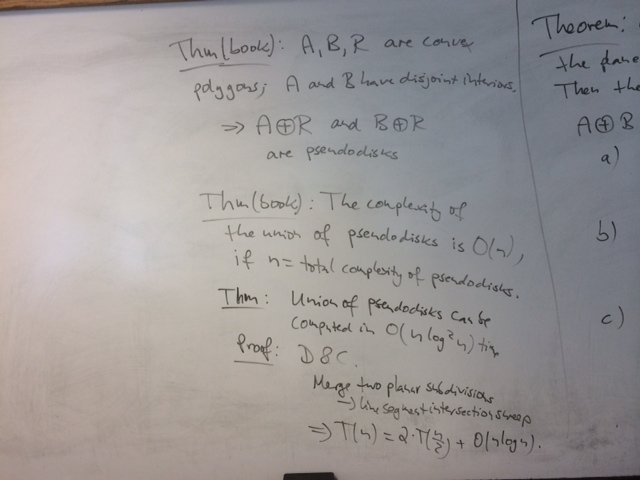 Thm(book): A, B, R are convex
polygons; A and B have disjoint interiors.
⇒ A⊕R and B⊕R
are pseudodisks
Thm(book): The complexity of
the union of pseudodisks is O(n),
if n = total complexity of pseudodisks.
Thm: Union of pseudodisks can be
computed in O(n log²n) time
Proof: D&C.
Merge two planar subdivisions
→ line segment intersection sweep
⇒ T(n) = 2·T(n/2) + O(n log n).
Theorem:
the plane
Then the
A⊕B
a)
b)
c)